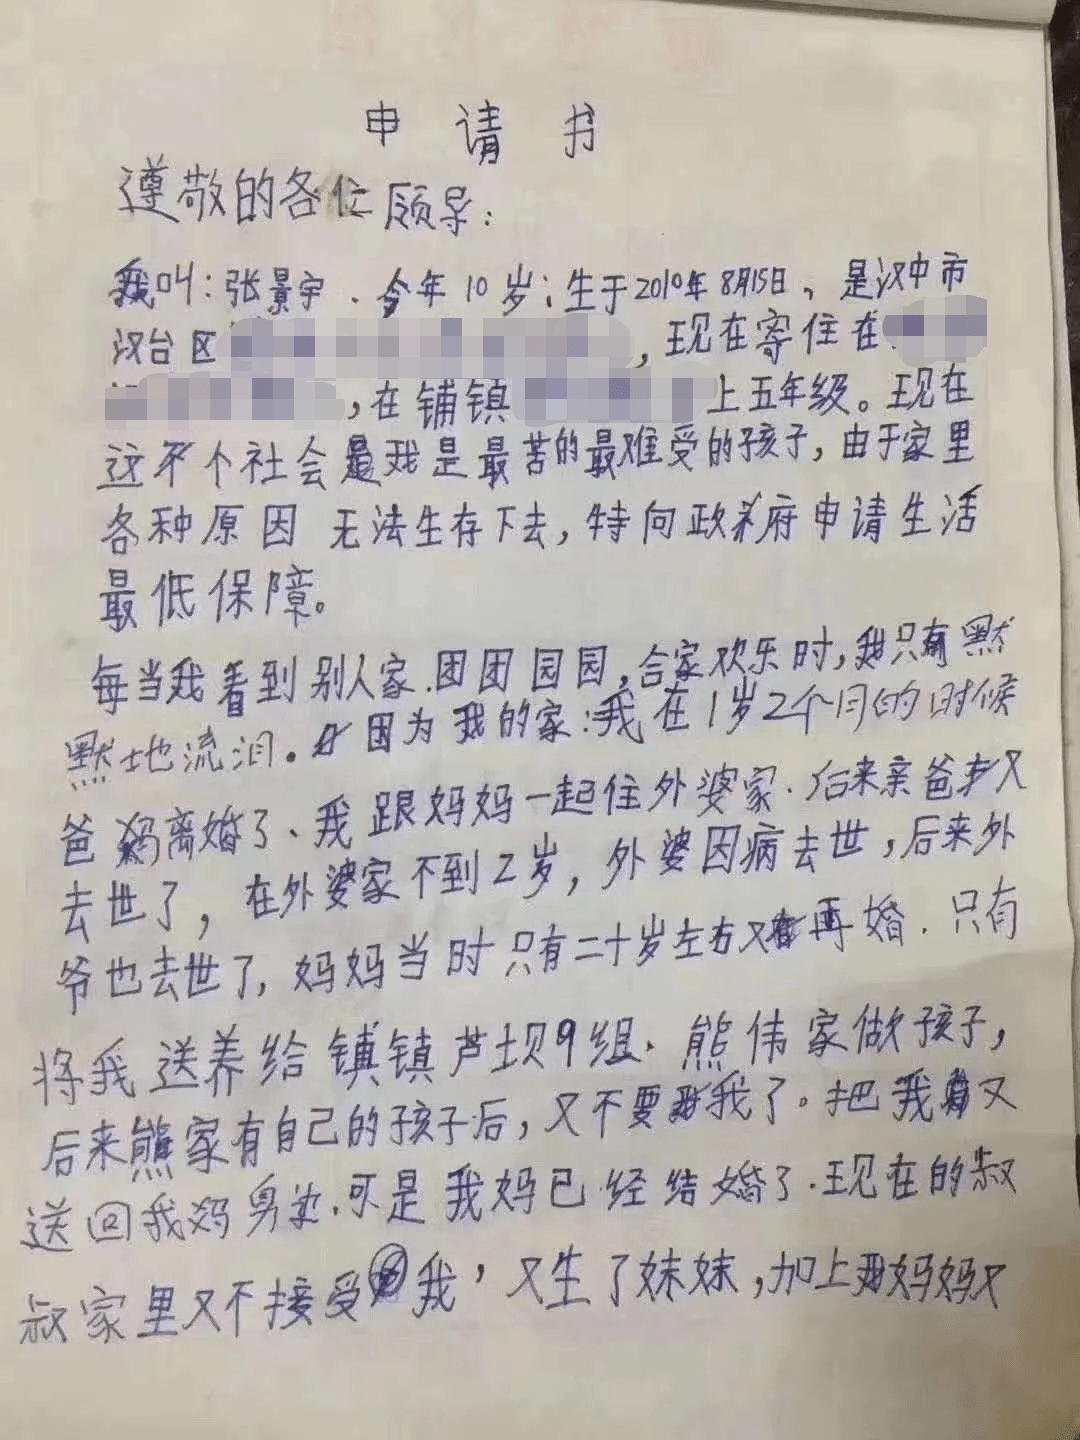 申请书
遵敬的各位领导:
我叫:张景宇.今年10岁;生于2010年8月15日,是汉中市
汉台区,现在寄住在
,在铺镇上五年级。现在
这个社会是我是最苦的最难受的孩子,由于家里
各种原因 无法生存下去,特向政府申请生活
最低保障。
每当我看到别人家.团团园园,合家欢乐时,我只有默
默地流泪。因为我的家:我在1岁2个月的时候
爸妈离婚了、我跟妈妈一起住外婆家.后来亲爸才又
去世了,在外婆家不到2岁,外婆因病去世,后来外
爷也去世了,妈妈当时只有二十岁左右又在再婚.只有
将我送养给镇镇芦坝9组.熊伟家做孩子,
后来熊家有自己的孩子后,又不要我了。把我又
送回我妈身边.可是我妈已经结婚了.现在的叔
叔家里又不接受我,又生了妹妹,加上我妈妈又